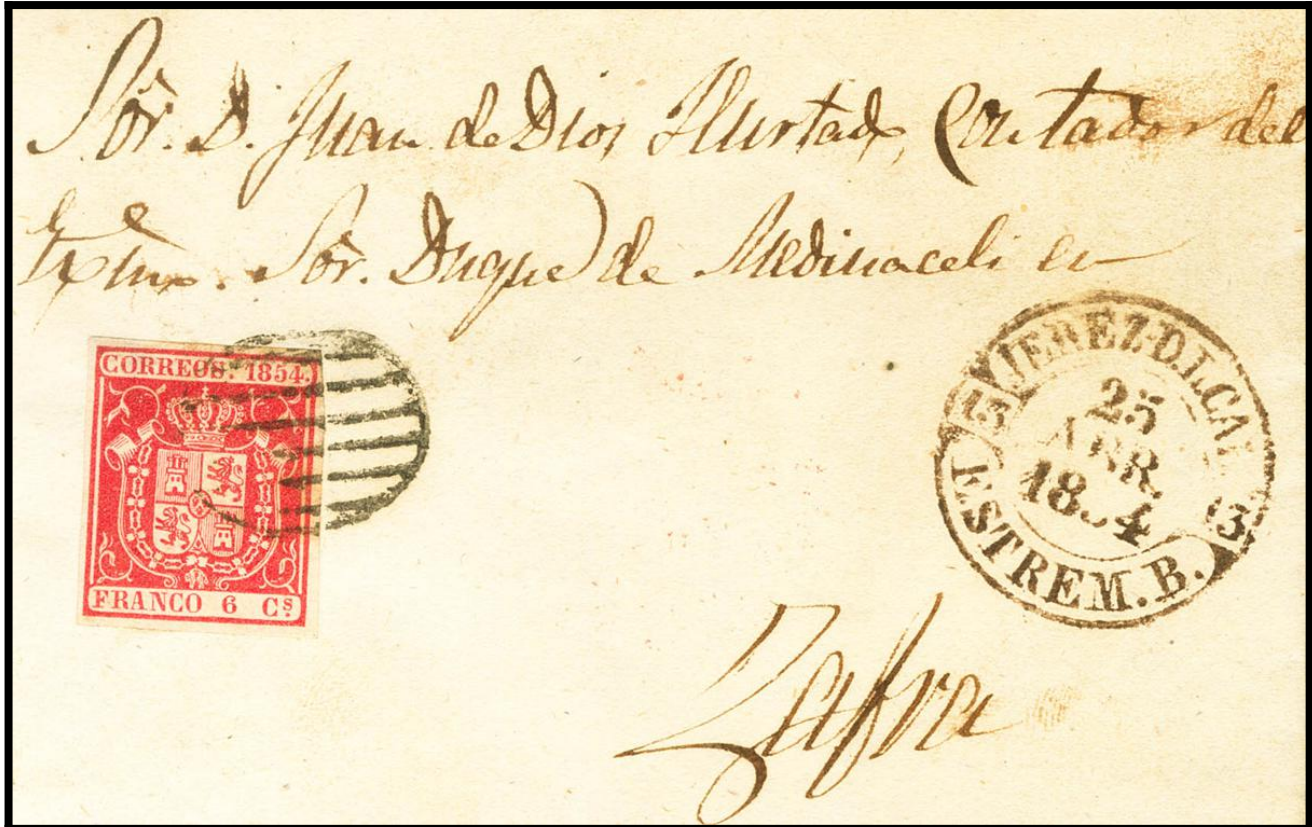 Sõr. D. Juan de Dios Hurtado, Contador del
Exĩno. Sõr. Duque de Medinaceli en
CORREOS. 1854.
FRANCO 6 Cs.
XEREZ-D.L.CA
25
ABR.
1854
ESTREM. B.
Zafra